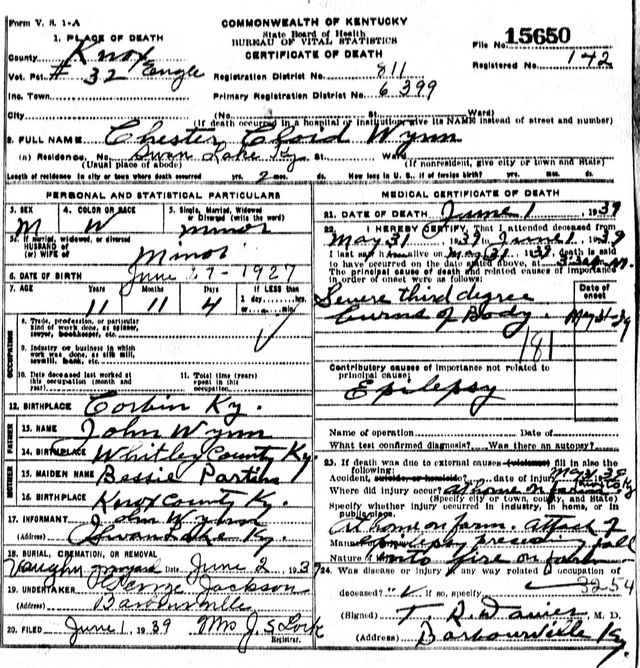 Form V. S. 1-A
COMMONWEALTH OF KENTUCKY
State Board of Health
BUREAU OF VITAL STATISTICS
CERTIFICATE OF DEATH
File No. 15650
Registered No. 142
1. PLACE OF DEATH
County Knox
Vot. Pct. # 32 Engle
Registration District No. 811
Inc. Town
Primary Registration District No. 6399
City (No. St. Ward)
(If death occurred in a hospital or institution, give its NAME instead of street and number)
2. FULL NAME Chester Cloid Wynn
(a) Residence. No. Swan Lake Ky. St. Ward
(Usual place of abode) (If nonresident, give city or town and State)
Length of residence in city or town where death occurred yrs. 2 mos. ds. How long in U. S., if of foreign birth? yrs. mos. ds.
PERSONAL AND STATISTICAL PARTICULARS
3. SEX M
4. COLOR OR RACE W
5. Single, Married, Widowed or Divorced (write the word) minor
5a. If married, widowed, or divorced
HUSBAND of
(or) WIFE of Minor
6. DATE OF BIRTH June 27-1927
7. AGE Years 11 Months 11 Days 4 If LESS than 1 day hrs. or min.
OCCUPATION
8. Trade, profession, or particular kind of work done, as spinner, sawyer, bookkeeper, etc.
9. Industry or business in which work was done, as silk mill, sawmill, bank, etc.
10. Date deceased last worked at this occupation (month and year)
11. Total time (years) spent in this occupation
12. BIRTHPLACE Corbin Ky.
FATHER
13. NAME John Wynn
14. BIRTHPLACE Whitley County Ky.
MOTHER
15. MAIDEN NAME Bessie Partin
16. BIRTHPLACE Knox County Ky
17. INFORMANT John Wynn
(Address) Swan Lake Ky.
18. BURIAL, CREMATION, OR REMOVAL
Vaughn Date June 2, 1939
19. UNDERTAKER George Jackson
(Address) Barbourville
20. FILED June 1 1939 Mrs J. S. Lock
Registrar.
MEDICAL CERTIFICATE OF DEATH
21. DATE OF DEATH June 1, 1939
22. I HEREBY CERTIFY, That I attended deceased from
May 31 1939 to June 1, 1939
I last saw h alive on May 31 1939. death is said
to have occurred on the date stated above, at m.
The principal cause of death and related causes of importance in order of onset were as follows:
Date of onset
Severe third degree
burns of Body. May 31-39
181
Contributory causes of importance not related to principal cause:
Epilepsy
Name of operation Date of
What test confirmed diagnosis? Was there an autopsy?
23. If death was due to external causes (violence) fill in also the following:
Accident, suicide, or homicide? date of injury May 39
Where did injury occur? At home on farm Ky
(Specify city or town, county, and State)
Specify whether injury occurred in industry, in home, or in public place.
At home on farm. Attack of
Manner epilepsy preceding fall
Nature of into fire on farm
24. Was disease or injury in any way related to occupation of
deceased? If so, specify 3254
(Signed) T. R. Davies, M. D.
(Address) Barbourville Ky.